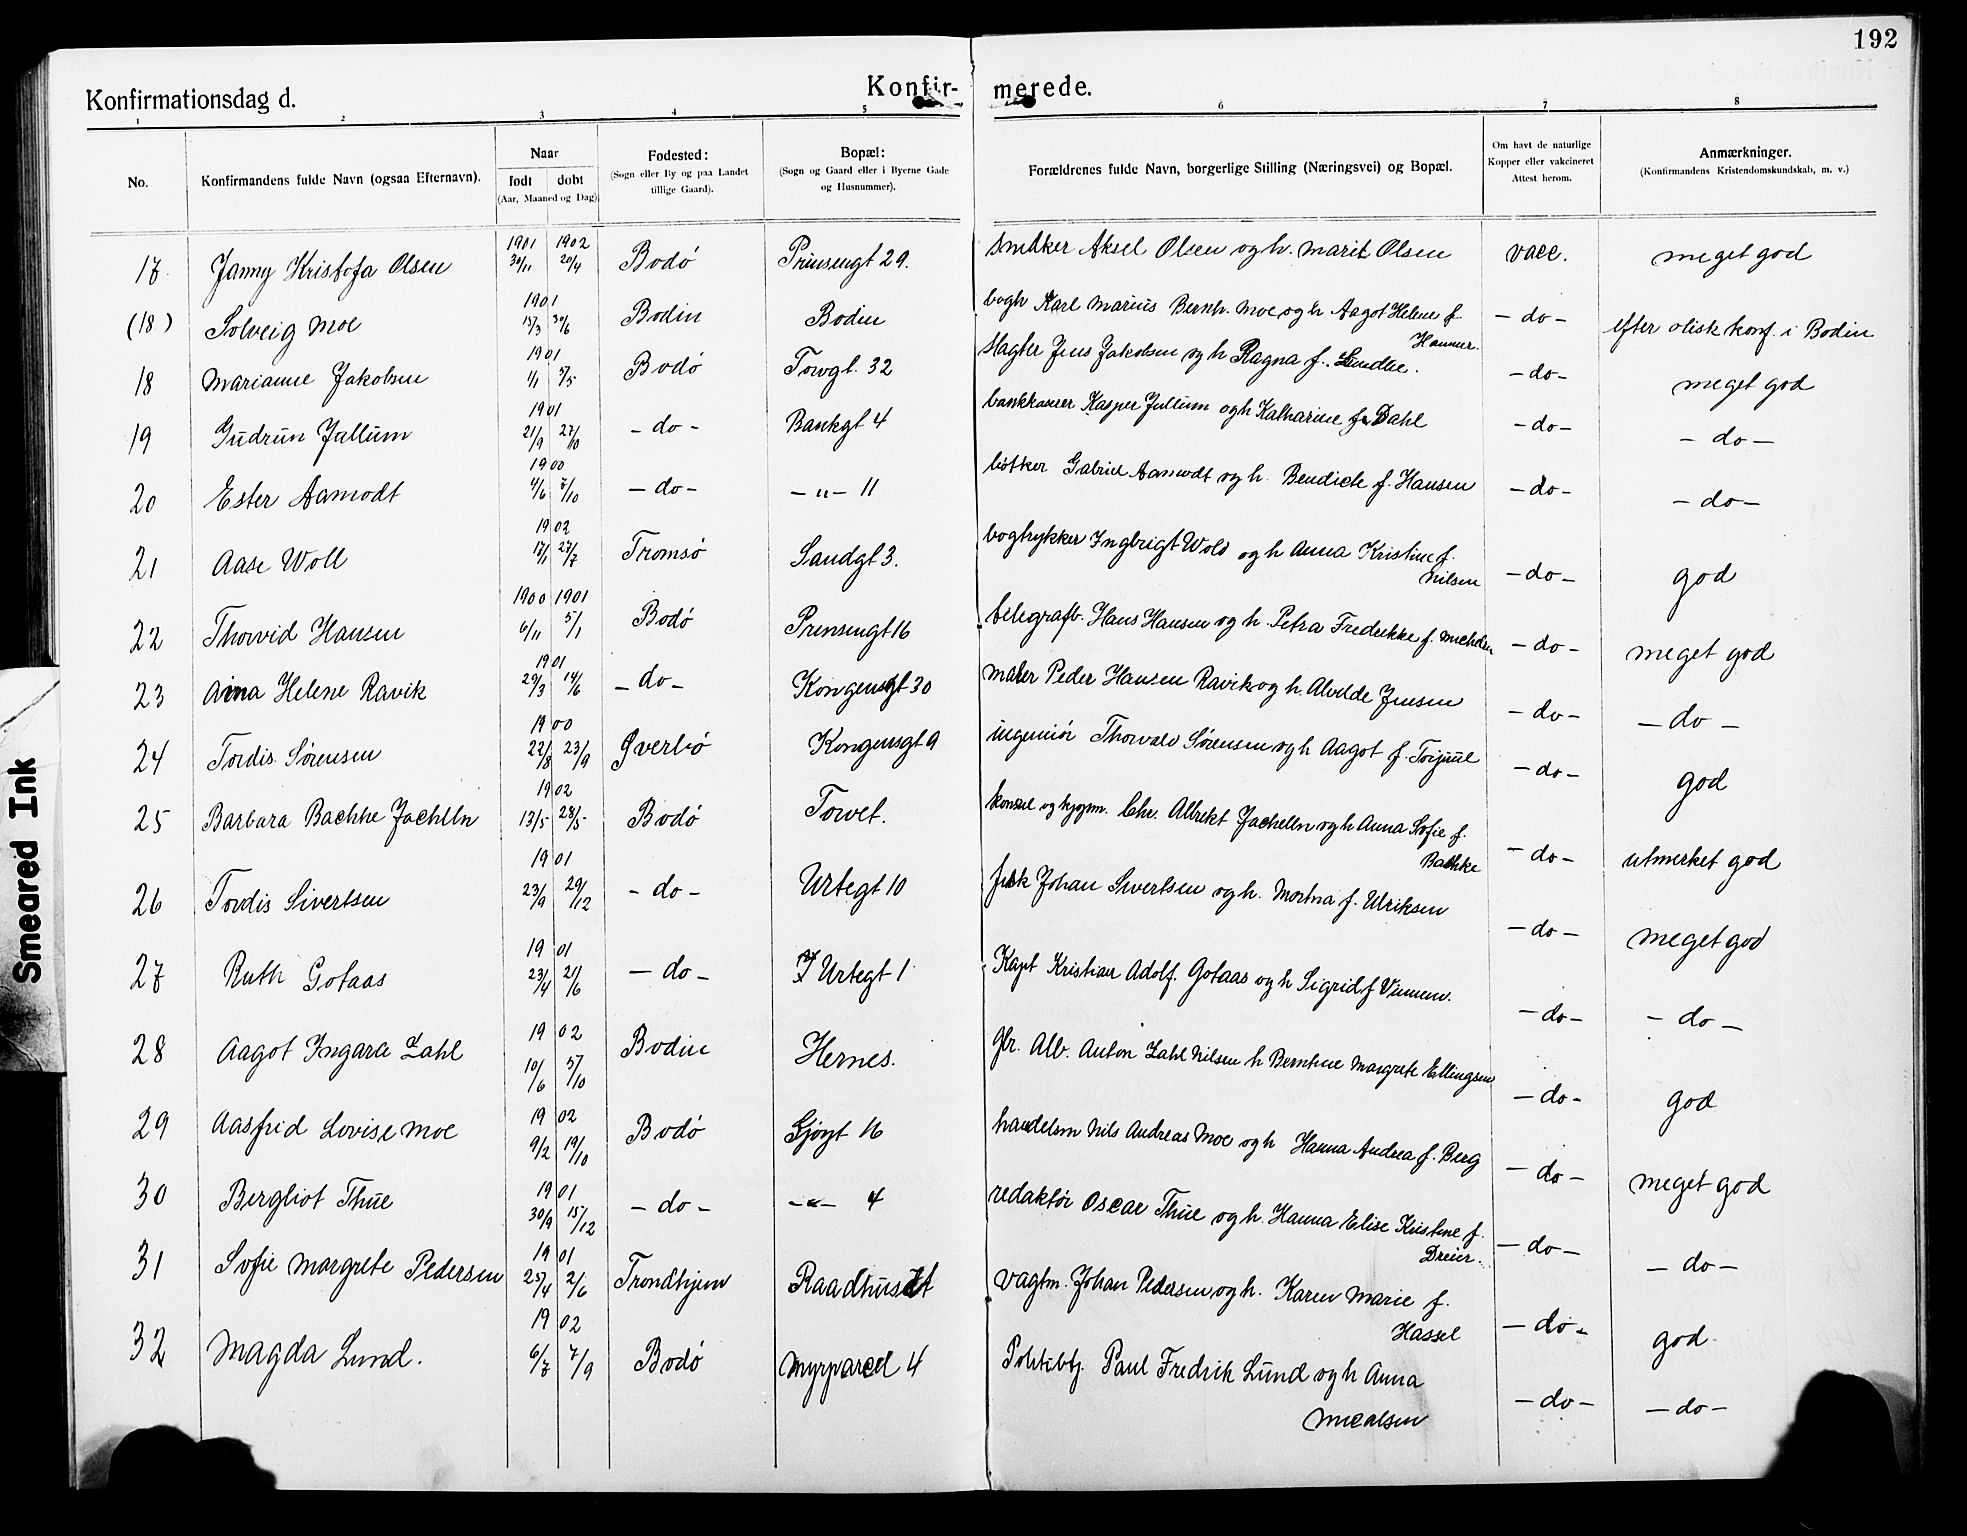 192
Konfirmationsdag d. Konfir- merede.
1 2 3 4 5 6 7 8
No. Konfirmandens fulde Navn (ogsaa Efternavn). Naar født døbt (Aar, Maaned og Dag) Fødested: (Sogn eller By og paa Landet tillige Gaard). Bopæl: (Sogn og Gaard eller i Byerne Gade og Husnummer). Forældrenes fulde Navn, borgerlige Stilling (Næringsvei) og Bopæl. Om havt de naturlige Kopper eller vakcineret Attest herom. Anmærkninger. (Konfirmandens Kristendomskundskab, m. v.)
17 Janny Kristofa Olsen 1901 30/11 1902 20/4 Bodø Prinsengt 29. Aksel Olsen og h. Marit Olsen vacc. meget god
(18) Solveig Moe 1901 15/3 30/6 Bodin Bodin bogh Karl Marius Bernh. Moe og h Aagot Helene f. -do- efter konf. i Bodin
18 Marianne Jakobsen 1901 1/1 5/5 Bodø Torvgt. 32 slagter Jens Jakobsen og h Ragna f. -do- meget god
19 Gudrun Jullum 1901 21/9 27/10 -do- Bankgt 4 bankkaserer Kasper Jullum og h Katharine f. Dahl -do- -do-
20 Ester Aamodt 1900 4/6 7/10 -do- -"- 11 bøtker Gabriel Aamodt og h. Bendicte f. Hansen -do- -do-
21 Aase Woll 1902 17/1 27/7 Tromsø Sandgt 3. bogtrykker Ingbrigt Wold og h Anna Kristine f.
Nilsen -do- god
22 Thorvid Hansen 1900 6/11 1901 5/1 Bodø Prinsengt 16 telegrafb. Hans Hansen og h. Petra Fredrikke f. -do- meget god
23 Aina Helene Ravik 1901 29/3 14/6 -do- Kongensgt 30 maler Peder Hansen Ravik og h. Alvilde Jensen -do- -do-
24 Tordis Sørensen 1900 22/8 23/9 Øverbø Kongensgt 9 ingeniør Thorvald Sørensen og h Aagot f. -do- god
25 Barbara Bachke Jachelln 1902 13/5 28/5 Bodø Torvet. konsul og kjøpm. Chr. Albrekt Jachelln og h Anna Sofie f.
Bachke -do- utmerket god
26 Tordis Sivertsen 1901 23/9 29/12 -do- Urtegt 10 fisk Johan Sivertsen og h. Martna f. Ulriksen -do- meget god
27 Ruth Gotaas 1901 23/4 21/6 -do- Urtegt 1 Kapt Kristian Adolf Gotaas og h Sigrid f -do- -do-
28 Aagot Ingara Zahl 1902 10/6 5/10 Bodin Hernes. gbr. Alb. Anton Zahl Nilsen h Berntine Margrete Ellingsen -do- god
29 Aasfrid Lovise Moe 1902 9/2 19/10 Bodø Sjøgt 16 handelsm Nils Andreas Moe og h Hanna Andrea f. Berg -do- meget god
30 Bergliot Thue 1901 30/9 15/12 -do- -"- 4 redaktør Oscar Thue og h. Hanna Elise Kristine f.
Dreier. -do- -do-
31 Sofie Margrete Pedersen 1901 25/4 2/6 Trondhjem Raadhuset vagtm. Johan Pedersen og h. Karen Marie f.
Hassel -do- god
32 Magda Lund. 1902 6/7 7/9 Bodø Myrparcel 4 Politibtj Paul Fredrik Lund og h Anna
-do- -do-
Smeared Ink